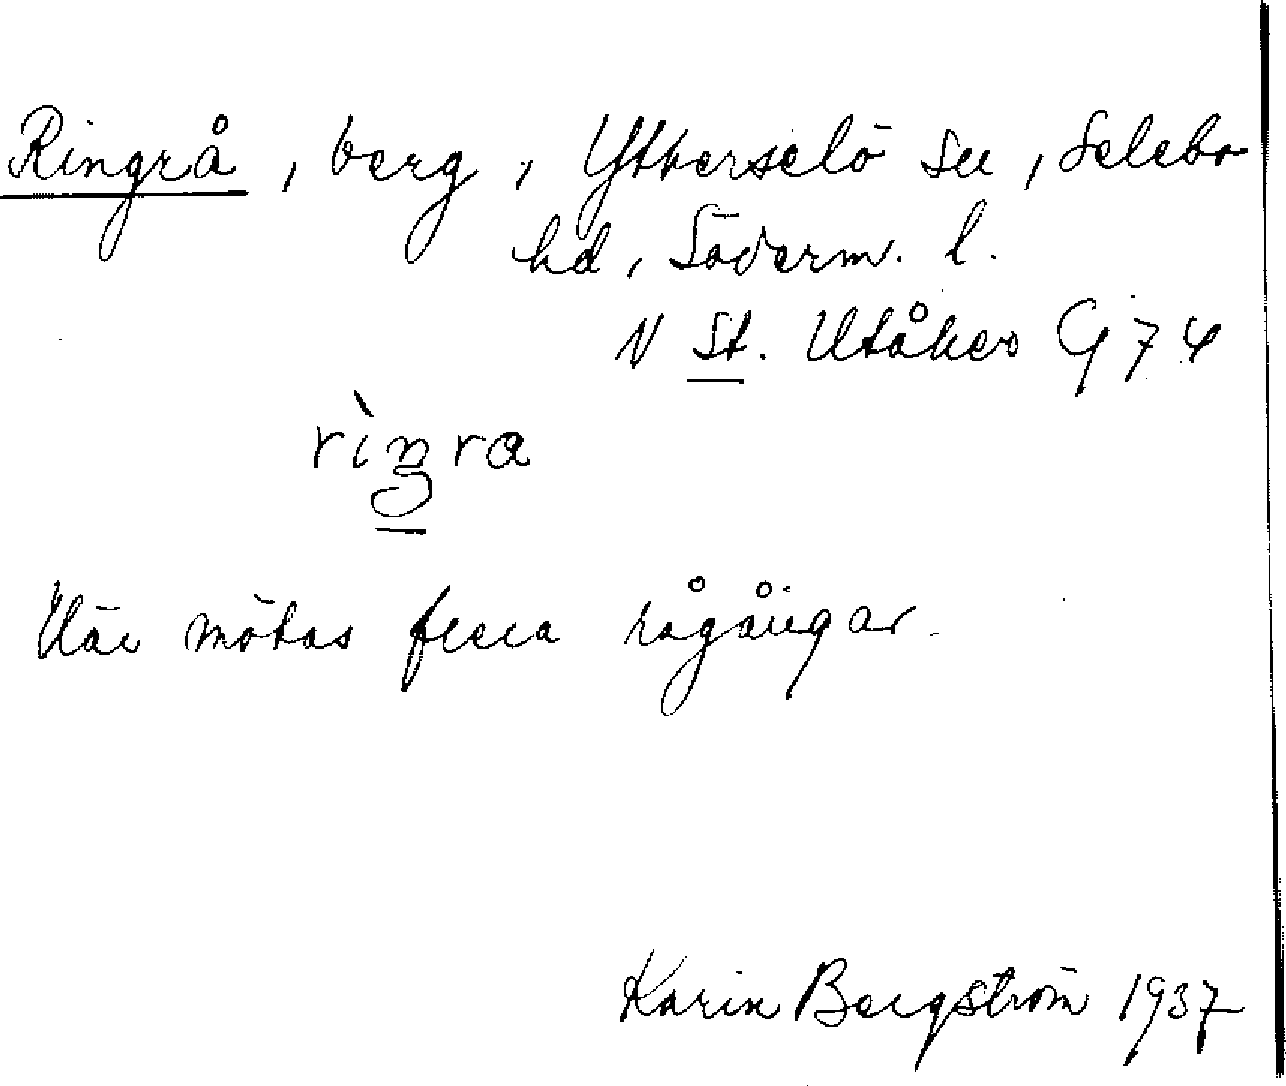 Ringrå, berg, Ytterselö sn, Selebo
hd, Söderm. l.
N St. Utåker G 7 4
rìŋra
Här mötas flera rågångar.
Karin Bergström 1937